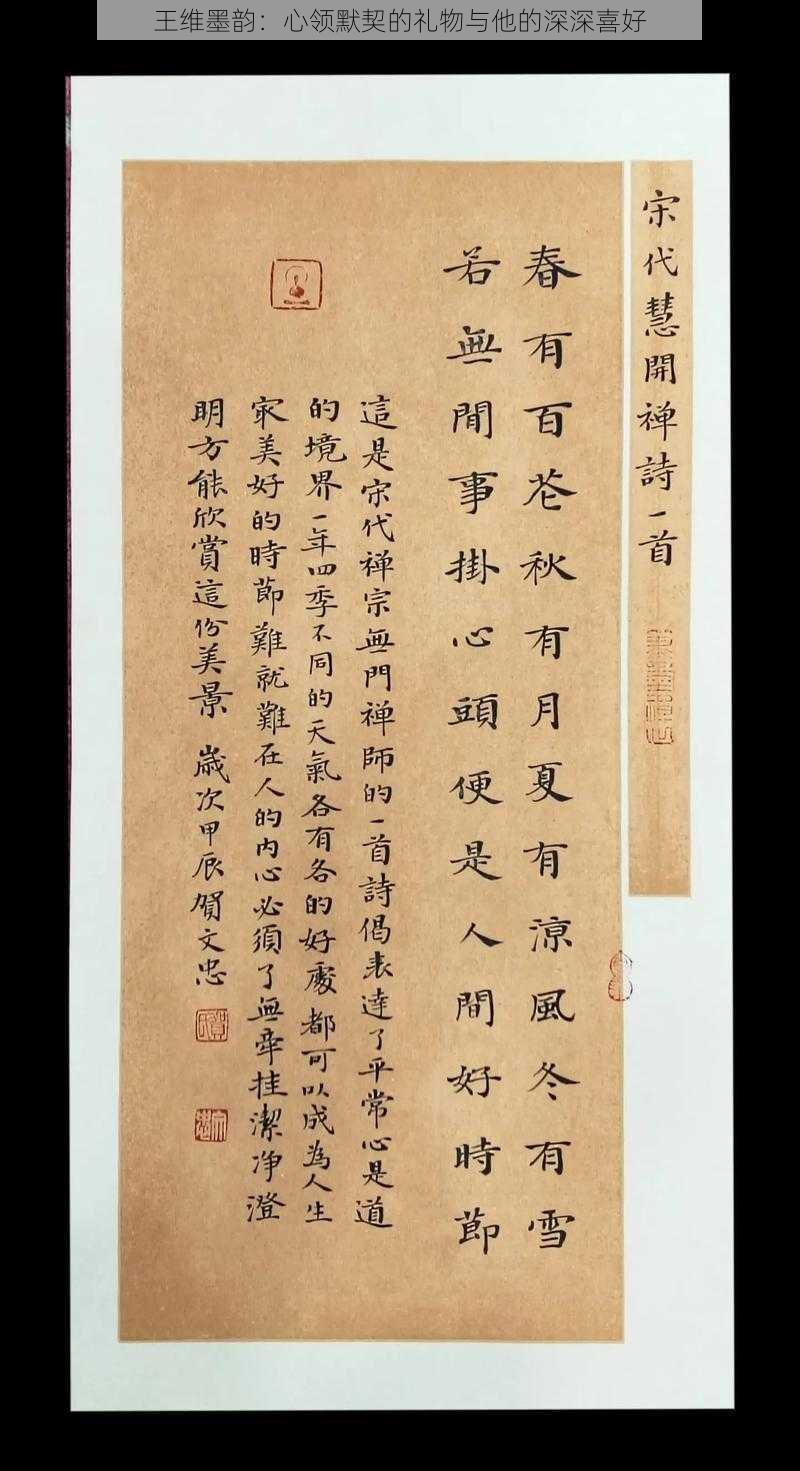 王维墨韵：心领默契的礼物与他的深深喜好
宋代慧開禅詩一首
春有百花秋有月夏有涼風冬有雪
若無閒事掛心頭便是人間好時節
這是宋代禅宗無門禅師的一首詩偈表達了平常心是道
的境界一年四季不同的天氣各有各的好處都可以成為人生
最美好的時節難就難在人的内心必須了無牽挂潔净澄
明方能欣賞這份美景 歲次甲辰賀文忠